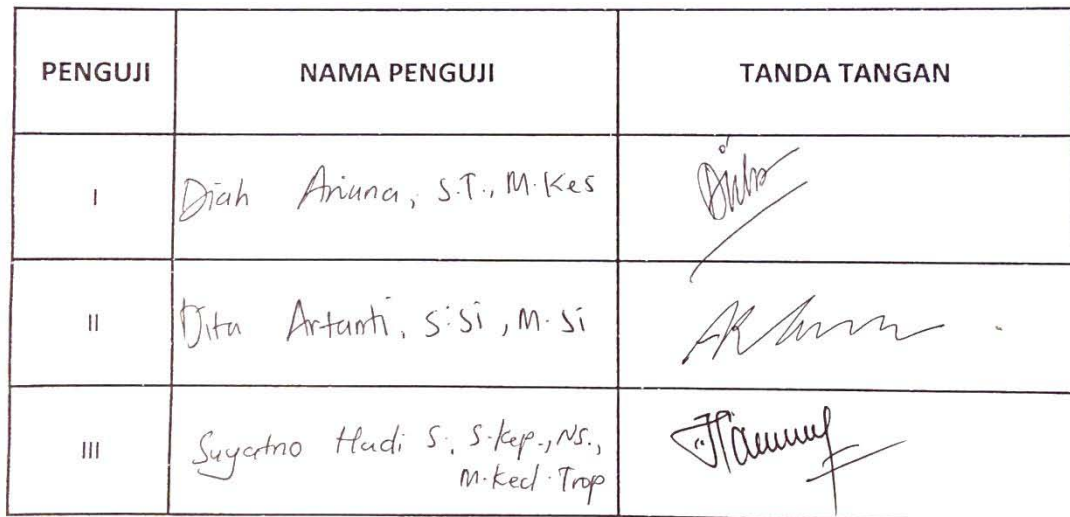 PENGUJI NAMA PENGUJI TANDA TANGAN
I Diah Ariana, S.T., M.Kes
II Dita Artanti, S.Si, M.Si
III Suyatno Hadi S, S.Kep., NS.,
M.Ked.Trop